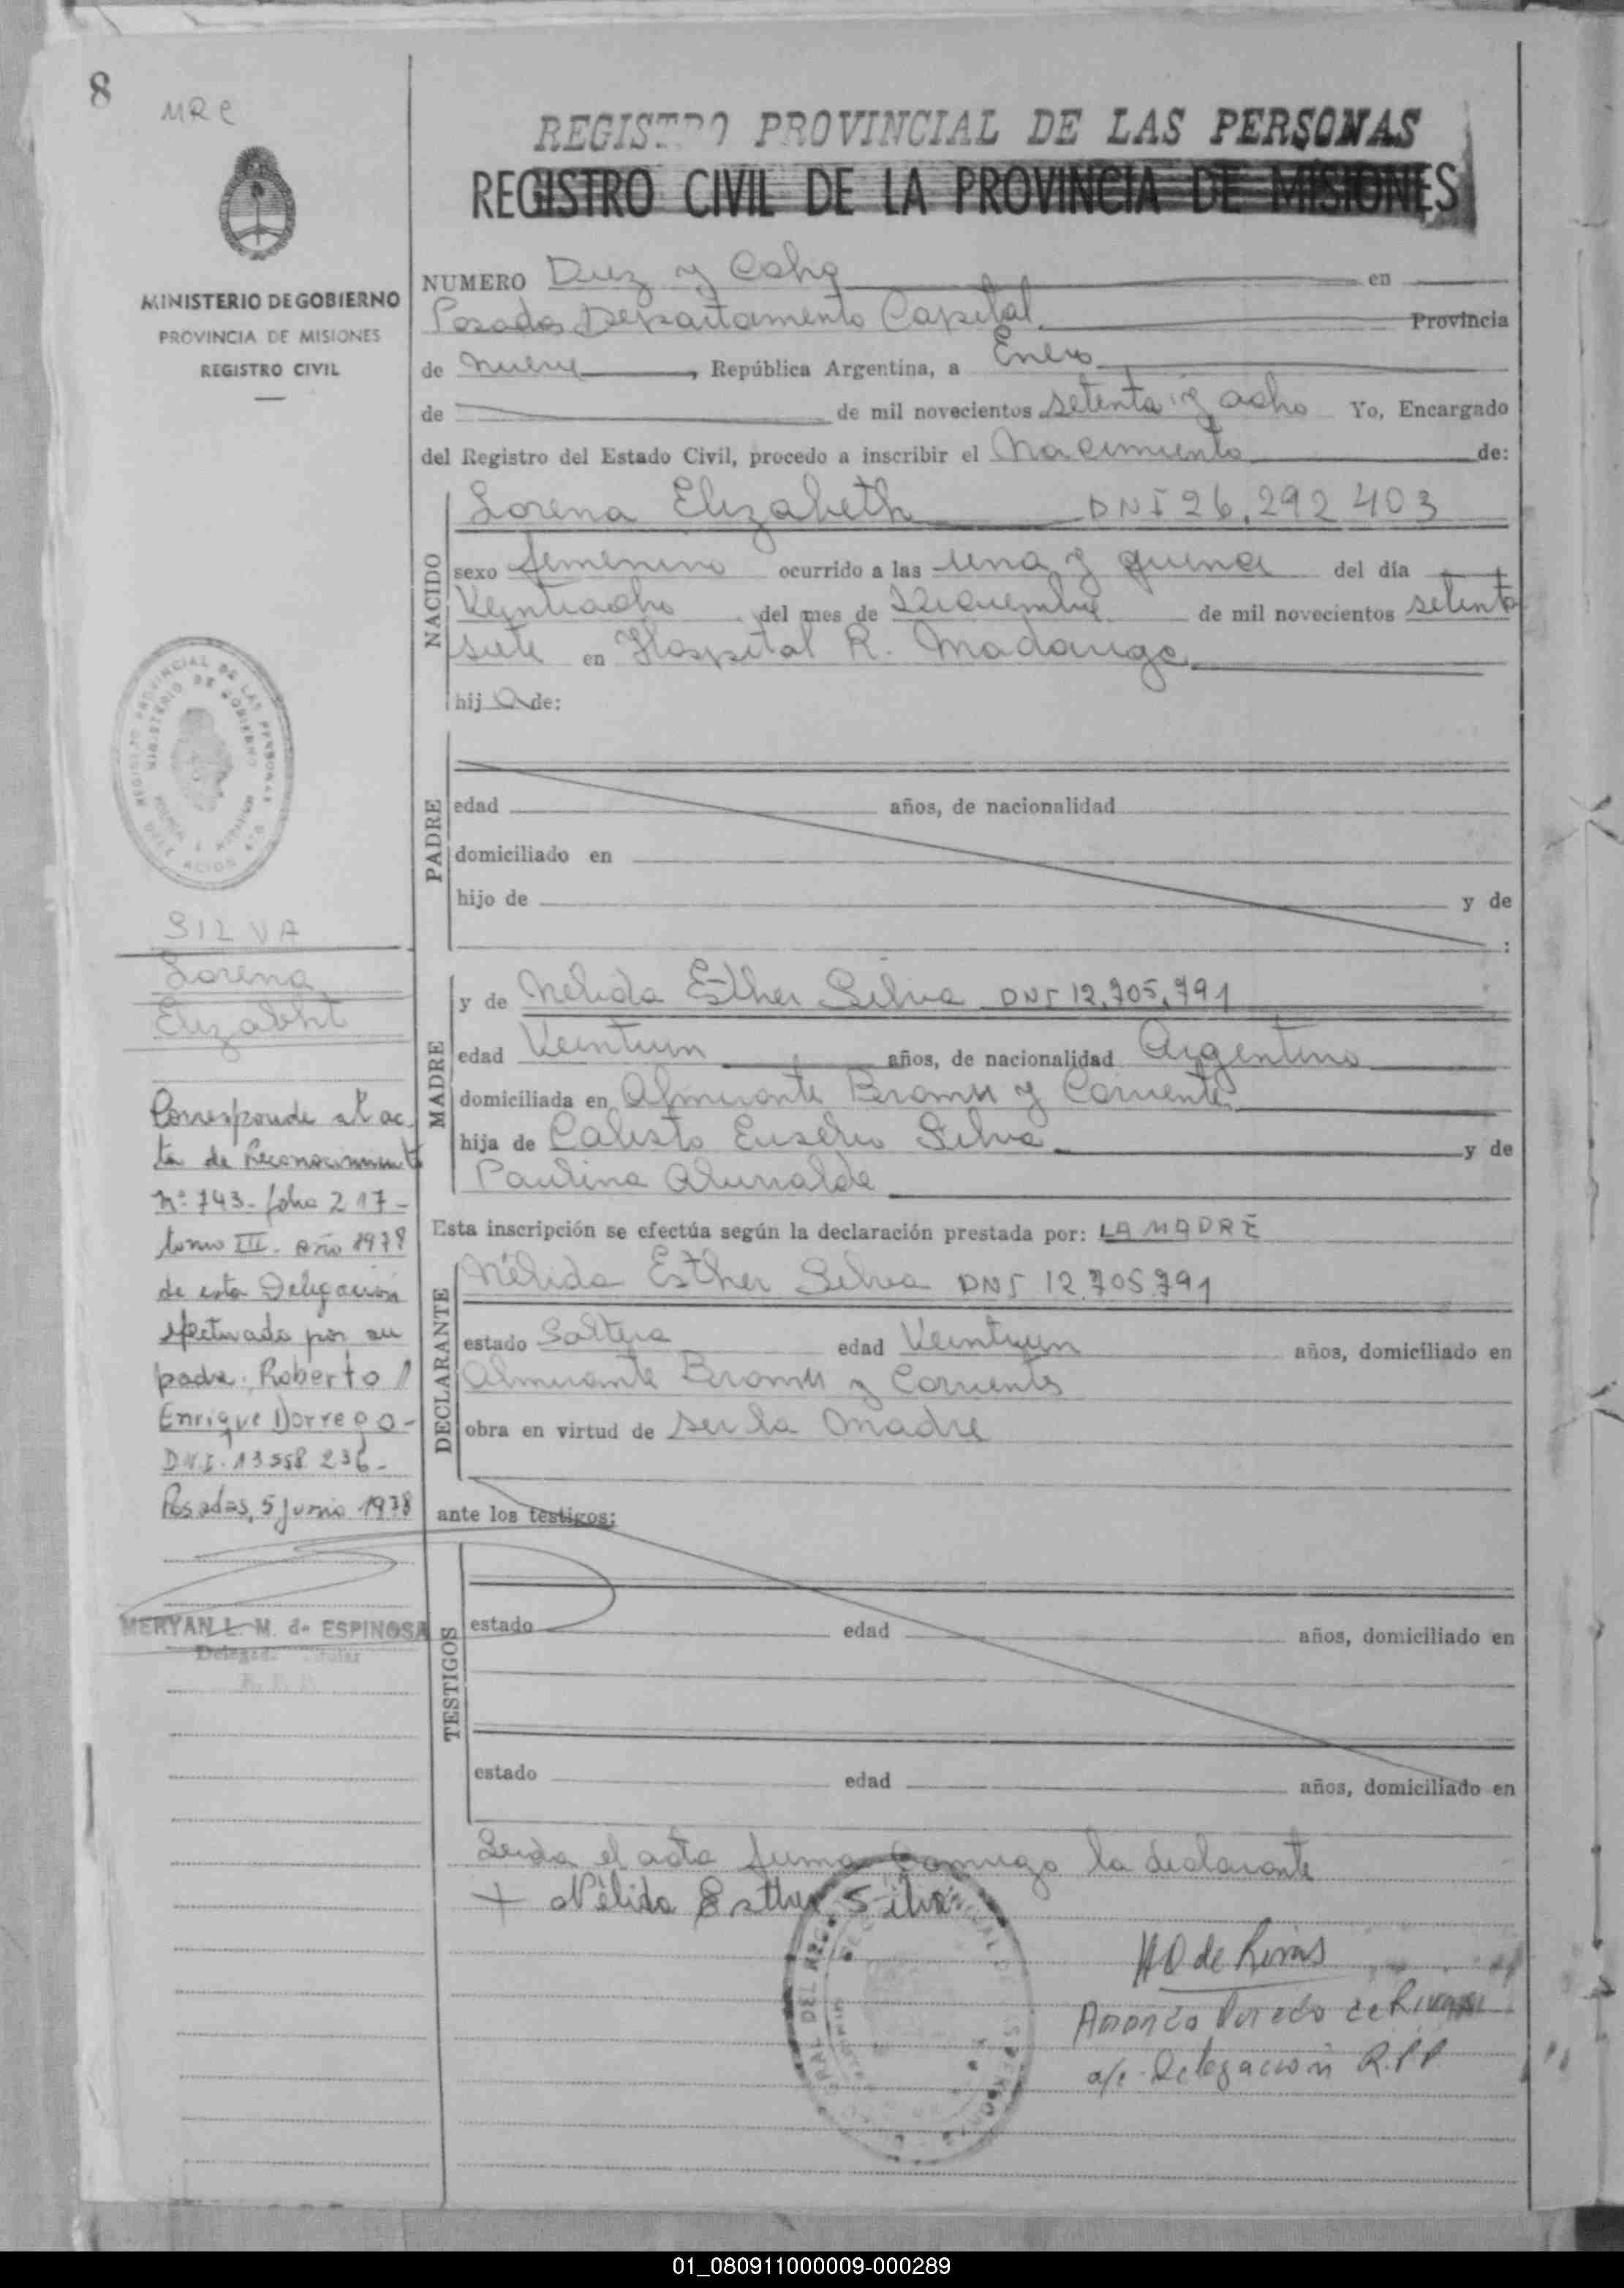 8
MRC
REGISTRO PROVINCIAL DE LAS PERSONAS
REGISTRO CIVIL DE LA PROVINCIA DE MISIONES
MINISTERIO DE GOBIERNO
PROVINCIA DE MISIONES
REGISTRO CIVIL
NUMERO Diez y Ocho en
Posadas Departamento Capital Provincia
de nueve, República Argentina, a Enero
de de mil novecientos setenta y ocho Yo, Encargado
del Registro del Estado Civil, procedo a inscribir el Nacimiento de:
NACIDO
Lorena Elizabeth DNI 26.292.403
sexo femenino ocurrido a las una y quince del día
Veintiocho del mes de Diciembre de mil novecientos setenta
siete en Hospital R. Madariaga
hija de:
PADRE
edad años, de nacionalidad
domiciliado en
hijo de y de
:
SILVA
Lorena
Elizabht
MADRE
y de Nélida Esther Silva DNI 12.705.791
edad Veintiun años, de nacionalidad Argentina
domiciliada en Almirante Brown y Corrientes
hija de Calisto Eusebio Silva y de
Paulina
Esta inscripción se efectúa según la declaración prestada por: LA MADRE
DECLARANTE
Nélida Esther Silva DNI 12.705.791
estado Soltera edad Veintiun años, domiciliado en
Almirante Brown y Corrientes
obra en virtud de ser la madre
ante los testigos:
Corresponde al ac-
ta de Reconocimiento
Nº 743- folio 217-
tomo III- año 1978
de esta Delegación
efectuado por su
padre: Roberto
Enrique Dorrego-
D.N.I. 13.558.236-
Posadas, 5 junio 1978
MERYAN L. M. de ESPINOSA
Delegada Titular
TESTIGOS
estado edad años, domiciliado en
estado edad años, domiciliado en
Leida el acta firma conmigo la declarante
+ Nélida Esther Silva
de Rivas
de Rivas
a/c. Delegación R.P.P
01_080911000009-000289